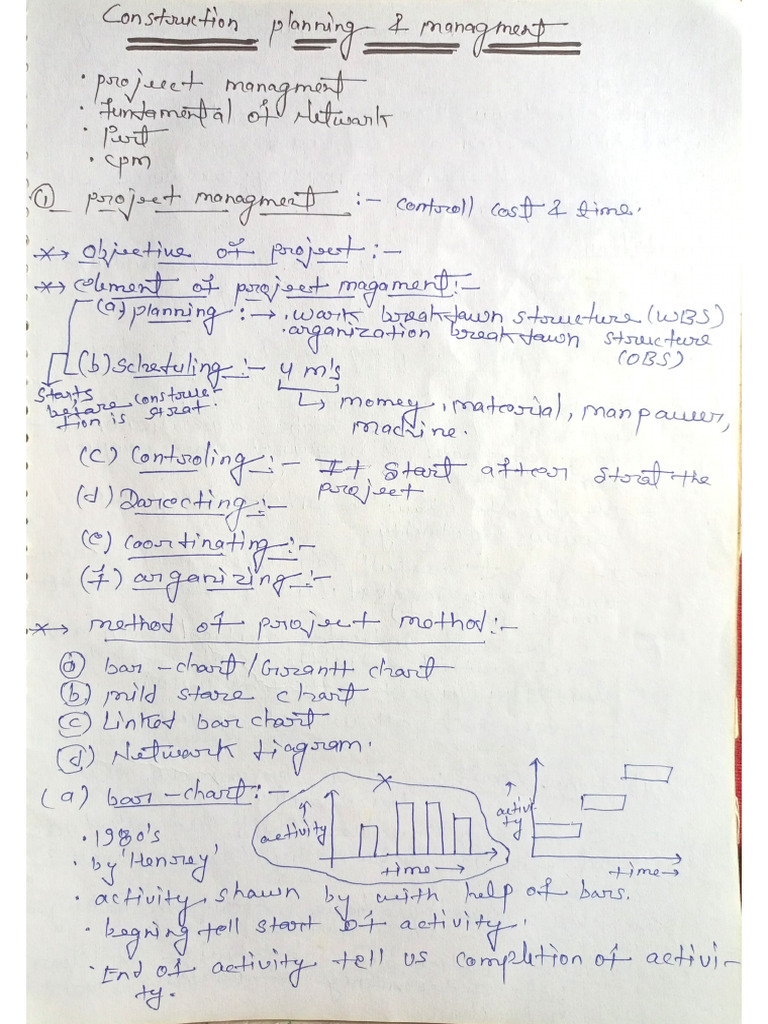 Construction planning & managment
• project managment
• fundamental of Network
• Pert
• cpm
① project managment :- controll cost & time.
*→ Objective of project :-
*→ element of project magament :-
(a) planning :→ • work breakdown structure (WBS)
• organization breakdown structure
(OBS)
(b) Scheduling :- 4 m's
↳ money, material, manpower,
machine.
starts
before construc-
tion is strat.
(c) Controling :- It start after strat the
project
(d) Darecting :-
(e) coordinating :-
(f) organizing :-
*→ method of project method :-
(a) bar-chart/Grantt chart
(b) mild stare chart
(c) Linked bar chart
(d) Network diagram.
(a) bar-chart :-
activity
time →
activi-
ty
time →
• by 'Henrey'
• activity shawn by with help of bars.
• begning tell start of activity.
• End of activity tell us completion of activi-
ty.